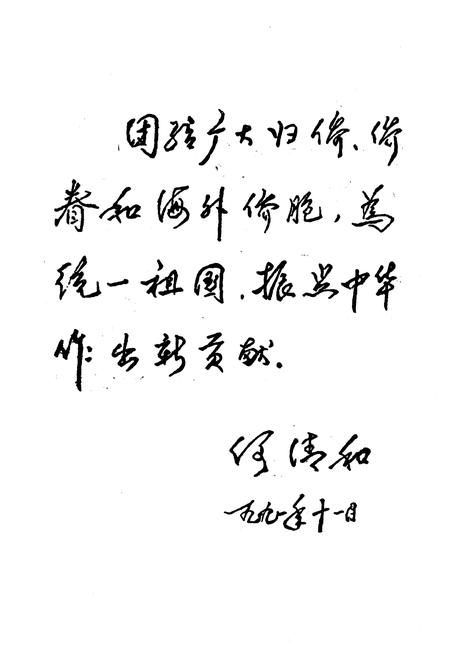 团结广大归侨、侨
眷和海外侨胞，为
统一祖国、振兴中华
作出新贡献.
何清和
一九九一年十一月